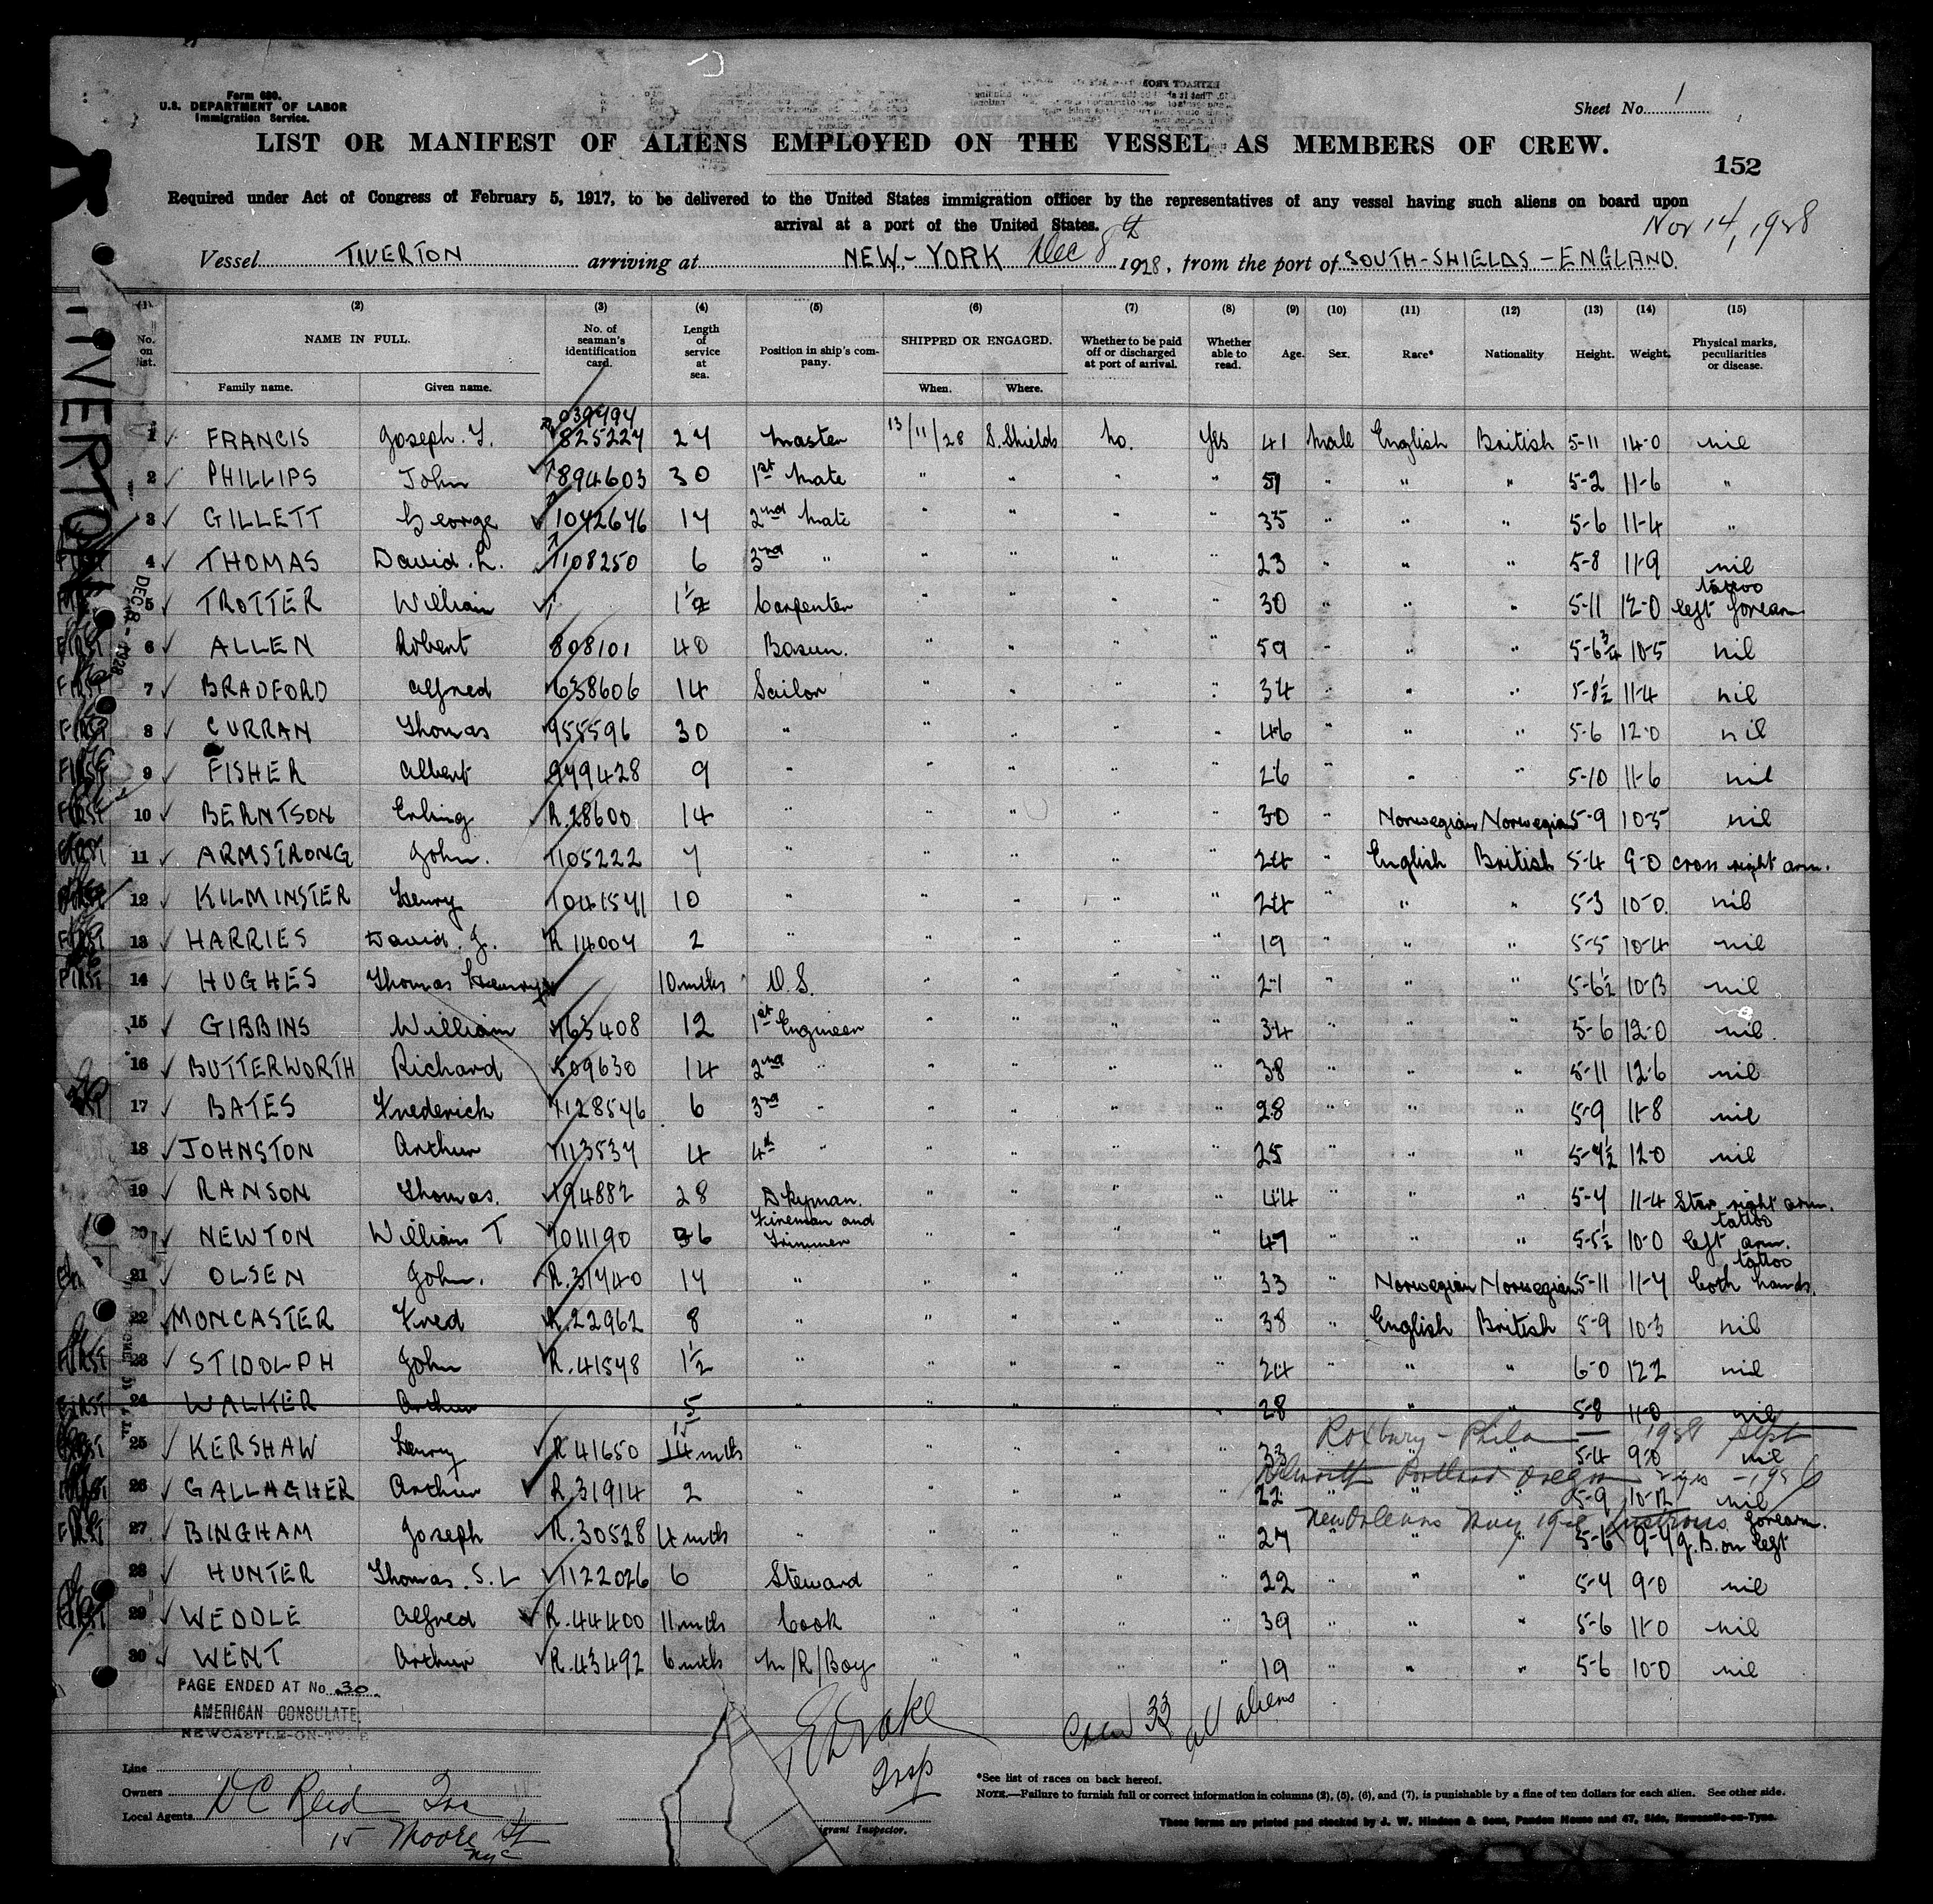 Form 680.
U.S. DEPARTMENT OF LABOR
Immigration Service.
Sheet No. 1
LIST OR MANIFEST OF ALIENS EMPLOYED ON THE VESSEL AS MEMBERS OF CREW.
152
Required under Act of Congress of February 5, 1917, to be delivered to the United States immigration officer by the representatives of any vessel having such aliens on board upon
arrival at a port of the United States.
Nov 14, 1928
Vessel TIVERTON arriving at NEW-YORK Dec 8th 1928, from the port of SOUTH-SHIELDS-ENGLAND.
TIVERTON
(1) (2) (3) (4) (5) (6) (7) (8) (9) (10) (11) (12) (13) (14) (15)
No. on list. NAME IN FULL. No. of seaman's identification card. Length of service at sea. Position in ship's company. SHIPPED OR ENGAGED. Whether to be paid off or discharged at port of arrival. Whether able to read. Age. Sex. Race* Nationality Height. Weight. Physical marks, peculiarities or disease.
Family name. Given name. When. Where.
039494
1 FRANCIS Joseph. Y. 825227 27 Master 13/11/28 S. Shields No. Yes 41 Male English British 5-11 14-0 nil
2 PHILLIPS John 894603 30 1st Mate " " " " 51 " " " 5-2 11-6 "
3 GILLETT George 1042676 17 2nd Mate " " " " 35 " " " 5-6 11-4 "
4 THOMAS David. L. 1108250 6 3rd " " " " " 23 " " " 5-8 11-9 nil
5 TROTTER William 1½ Carpenter " " " " 30 " " " 5-11 12-0 tattoo left forearm
6 ALLEN Robert 808101 40 Bosun. " " " " 59 " " " 5-6¾ 10-5 nil
7 BRADFORD Alfred 638606 14 Sailor " " " " 34 " " " 5-8½ 11-4 nil
8 CURRAN Thomas 955596 30 " " " " " 46 " " " 5-6 12-0 nil
9 FISHER Albert 979428 9 " " " " " 26 " " " 5-10 11-6 nil
10 BERNTSON Erling R.28600 14 " " " " " 30 " Norwegian Norwegian 5-9 10-5 nil
11 ARMSTRONG John. 1105222 7 " " " " " 24 " English British 5-4 9-0 cross right arm.
12 KILMINSTER Henry 1041571 10 " " " " " 24 " " " 5-3 10-0. nil
13 HARRIES David. J. R 14007 2 " " " " " 19 " " " 5-5 10-4 nil
14 HUGHES Thomas Henry 10 mths O.S. " " " " 21 " " " 5-6½ 10-13 nil
15 GIBBINS William 763408 12 1st Engineer " " " " 34 " " " 5-6 12-0 nil.
16 BUTTERWORTH Richard 509630 14 2nd " " " " " 38 " " " 5-11 12-6 nil
17 BATES Frederick 1128576 6 3rd " " " " " 28 " " " 5-9 11-8 nil
18 JOHNSTON Arthur 1113537 4 4th " " " " " 25 " " " 5-7½ 12-0 nil
19 RANSON Thomas. 794882 28 Dkyman. " " " " 44 " " " 5-7 11-4 Star right arm.
20 NEWTON William T 701190 36 Fireman and Trimmer " " " " 47 " " " 5-5½ 10-0 tattoo left arm.
21 OLSEN John. R.31740 17 " " " " " 33 " Norwegian Norwegian 5-11 11-7 tattoo both hands.
22 MONCASTER Fred R.22962 8 " " " " " 38 " English British 5-9 10-3 nil
23 STIDOLPH John R.41578 1½ " " " " " 24 " " " 6-0 12-2 nil
24 WALKER Arthur 5 " " " " " 28 " " " 5-8 11-0 nil
Roxbury - Phila Sept
25 KERSHAW Henry R.41650 14 mths " " " " " 33 " " " 5-4 9-0 nil
Portland Oregon
26 GALLAGHER Arthur R.31914 2 " " " " " 22 " " " 5-9 10-12 nil
New Orleans May
27 BINGHAM Joseph R.30528 4 mths " " " " " 27 " " " 5-6 9-7 J.B. on left forearm.
28 HUNTER Thomas. S. L 1122026 6 Steward " " " " 22 " " " 5-7 9-0 nil
29 WEDDLE Alfred R.44400 11 mths Cook " " " " 39 " " " 5-6 11-0 nil
30 WENT Arthur R.43492 6 mths M/R/Boy " " " " 19 " " " 5-6 10-0 nil
PAGE ENDED AT No. 30
AMERICAN CONSULATE,
NEWCASTLE-ON-TYNE
Drake
Insp
Crew 33 all aliens
Line
Owners
Local Agents. DC Reid Inc
15 Moore St
NYC
Immigrant Inspector.
*See list of races on back hereof.
NOTE.—Failure to furnish full or correct information in columns (2), (5), (6), and (7), is punishable by a fine of ten dollars for each alien. See other side.
These forms are printed and stocked by J. W. Hindson & Sons, Pandon House and 47, Side, Newcastle-on-Tyne.